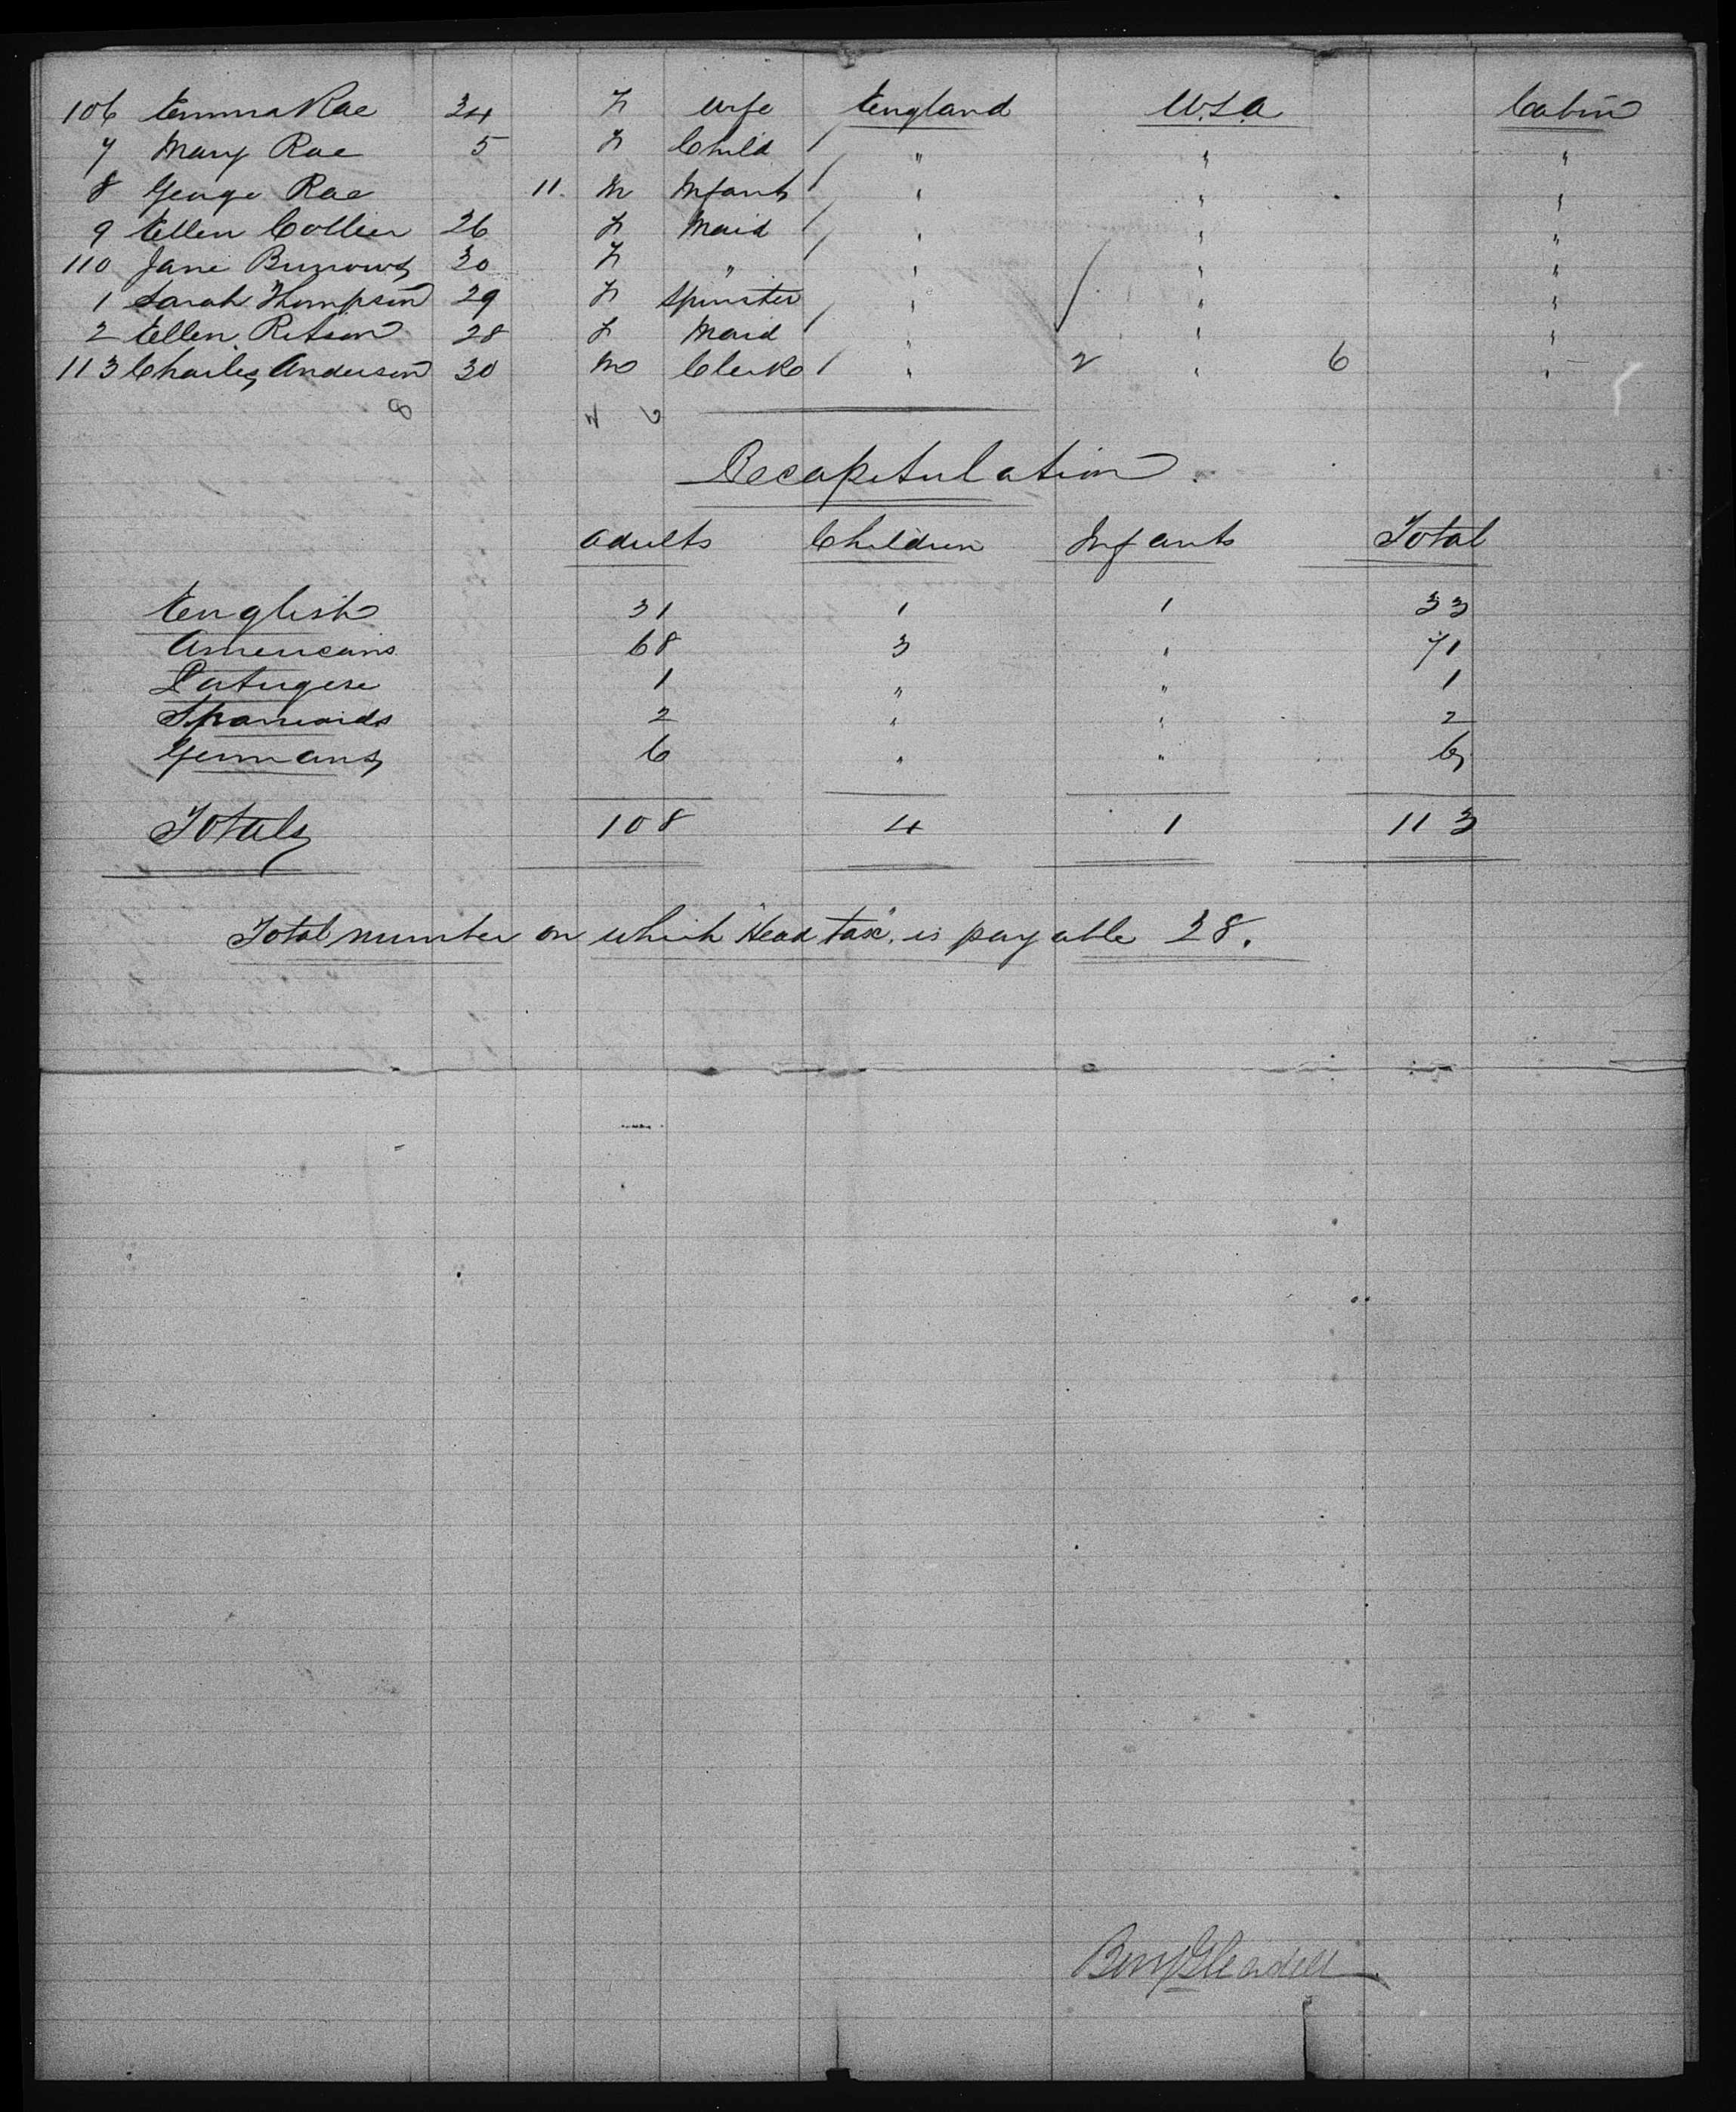 106 Emma Rae 34 F Wife England U.S.A Cabin
7 Mary Rae 5 F Child / " " "
8 George Rae 11. M Infant / " " "
9 Ellen Collier 26 F Maid / " " "
110 Jane Burrows 30 F " / " " "
1 Sarah Thompson 29 F Spinster / " " "
2 Ellen Ritson 28 F Maid / " " "
113 Charles Anderson 30 M Clerk / " 2 " 6 "
8
Recapitulation.
Adults Children Infants Total
English 31 1 1 33
Americans 68 3 " 71
Portugese 1 " " 1
Spaniards 2 " " 2
Germans 6 " " 6
Totals 108 4 1 113
Total number on which "Head tax" is payable 28.
Benj Gleadell